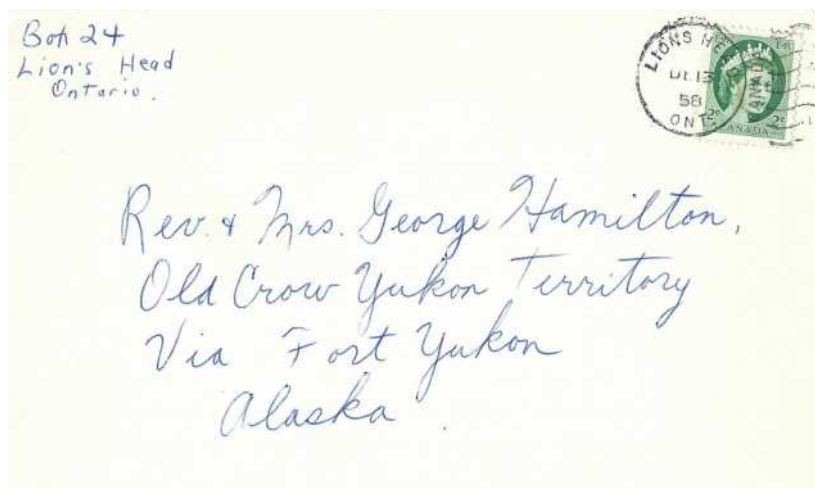 Box 24
Lion's Head
Ontario.
LIONS HE
13
58
ONT.
CANADA
2¢ 2¢
CANADA
Rev. & Mrs. George Hamilton,
Old Crow Yukon Territory
Via Fort Yukon
Alaska.